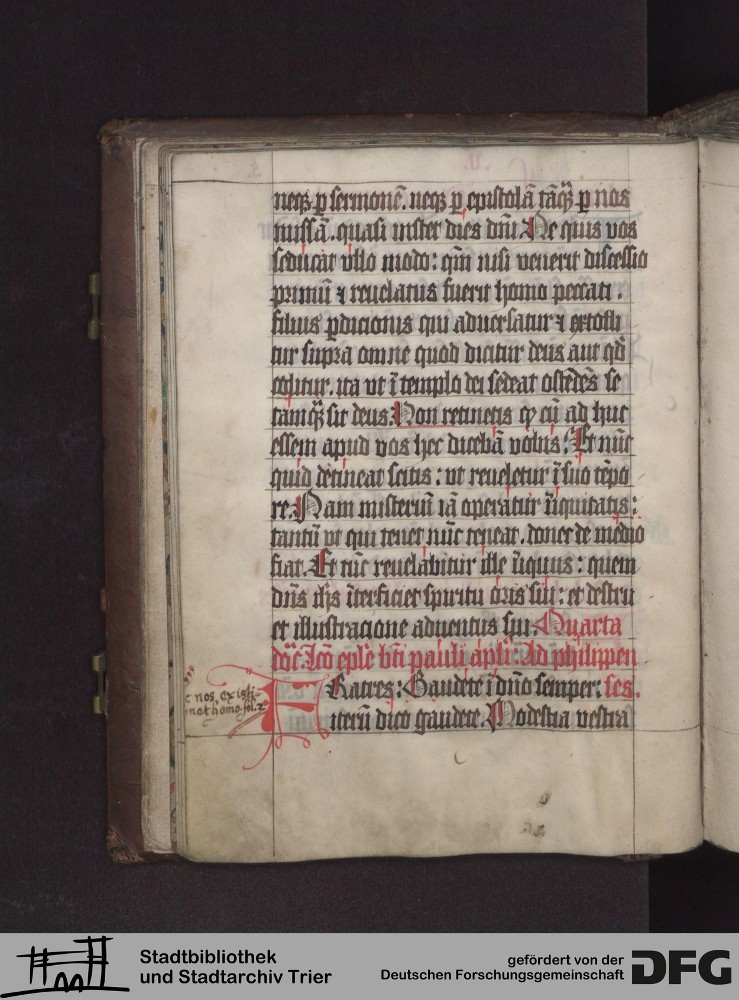 neqꝫ ꝑ sermonē. neqꝫ ꝑ epistolā tāqꝫ ꝑ nos
missā. quasi instet dies dnī. Ne quis vos
seducat vllo modo: qm̄ nisi venerit discessio
primū ⁊ reuelatus fuerit homo peccati.
filius ꝑdicionis qui aduersatur ⁊ extolli
tur supra omne quod dicitur deus aut qd̄
colitur. ita vt ī templo dei sedeat ostēdēs se
tamqꝫ sit deus. Non retinetis ꝙ cū ad huc
essem apud vos hec dicebā vobis: Et nūc
quid detineat scitis: vt reueletur ī suo tēpo
re. Nam misteriū iā operatur īiquitatis:
tantū vt qui tenet nūc teneat. donec de medio
fiat. Et tūc reuelabitur ille īiquus: quem
dn̄s ih̄s īterficiet spiritu oris sui: et destru
et illustracione aduentus sui. Quarta
dōc. Lcō ep̄le bt̄i pauli apl̄i: Ad philippen
FRatres: Gaudete ī dn̄o semper: ses.
iterū dico gaudete. Modestia vestra
c nos existi-
met homo fol. 2
Stadtbibliothek
und Stadtarchiv Trier
gefördert von der
Deutschen Forschungsgemeinschaft
DFG